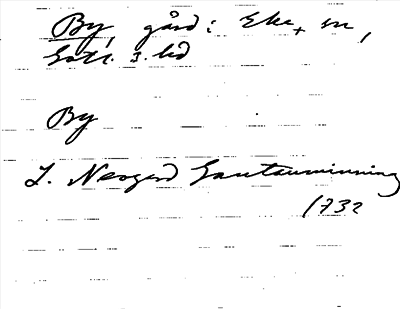 By, gård i Eke, sn,
Gotl. s. hd
By
L. Neogard Gautauminning
1732